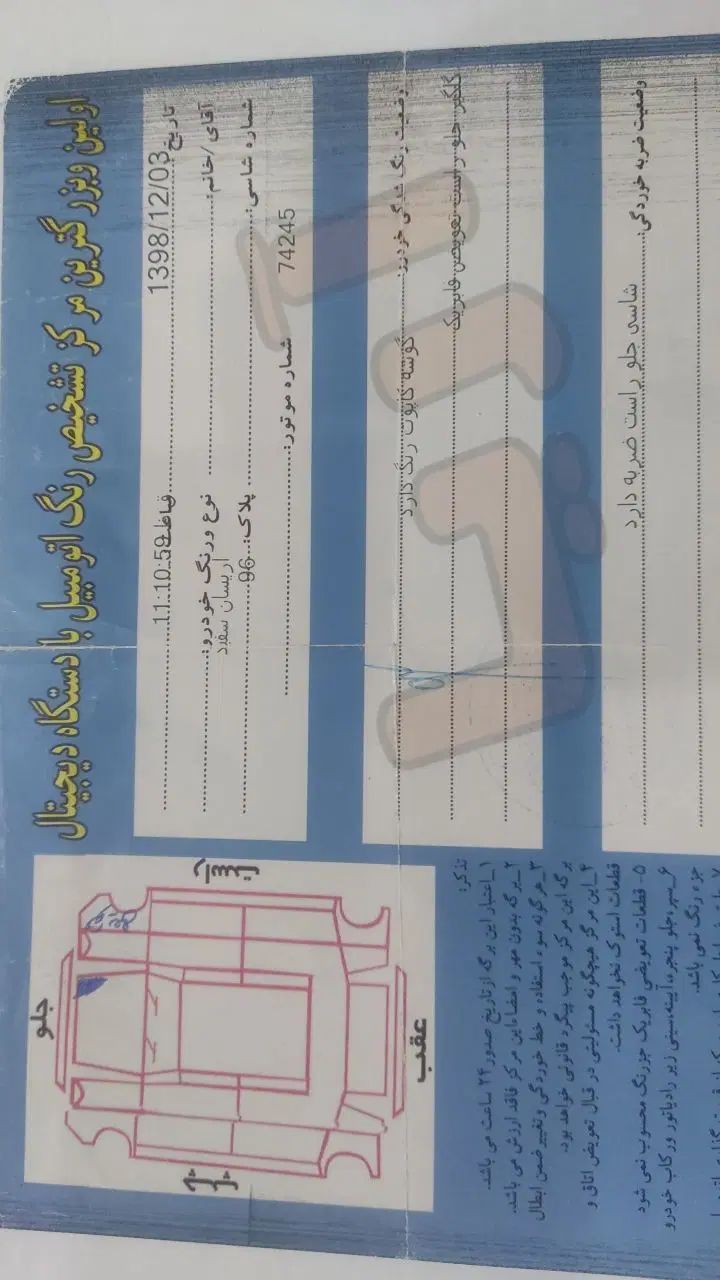 اولین وبزرگترین مرکز تشخیص رنگ اتومبیل با دستگاه دیجیتال
تاریخ: 1398/12/03 11:10:59
آقای /خانم: نوع ورنگ خودرو:
اریسان سفید
شماره شاسی: پلاک: 96
74245 شماره موتور:
وضعیت رنگ شدگی خودرو: گوشه کاپوت رنگ دارد
گلگیر جلو راست تعویض فابریک
وضعیت ضربه خوردگی: شاسی جلو راست ضربه دارد
جلو
عقب
تذکر:
۱_اعتبار این برگه ازتاریخ صدور ۲۴ ساعت می باشد.
۲_برگه بدون مهر و امضاءاین مرکز فاقد ارزش می باشد.
۳_هرگونه سوء استفاده و خط خوردگی وتغییر ضمن ابطال
برگه این مرکز موجب پیگرد قانونی خواهد بود.
۴_این مرکز هیچگونه مسئولیتی در قبال تعویض اتاق و
قطعات استوک نخواهد داشت.
۵- قطعات تعویضی فابریک جزرنگ محسوب نمی شود
۶_سپرجلو پنجره،آیینه،سینی زیر رادیاتور ورکاب خودرو
جزء رنگ نمی باشد.